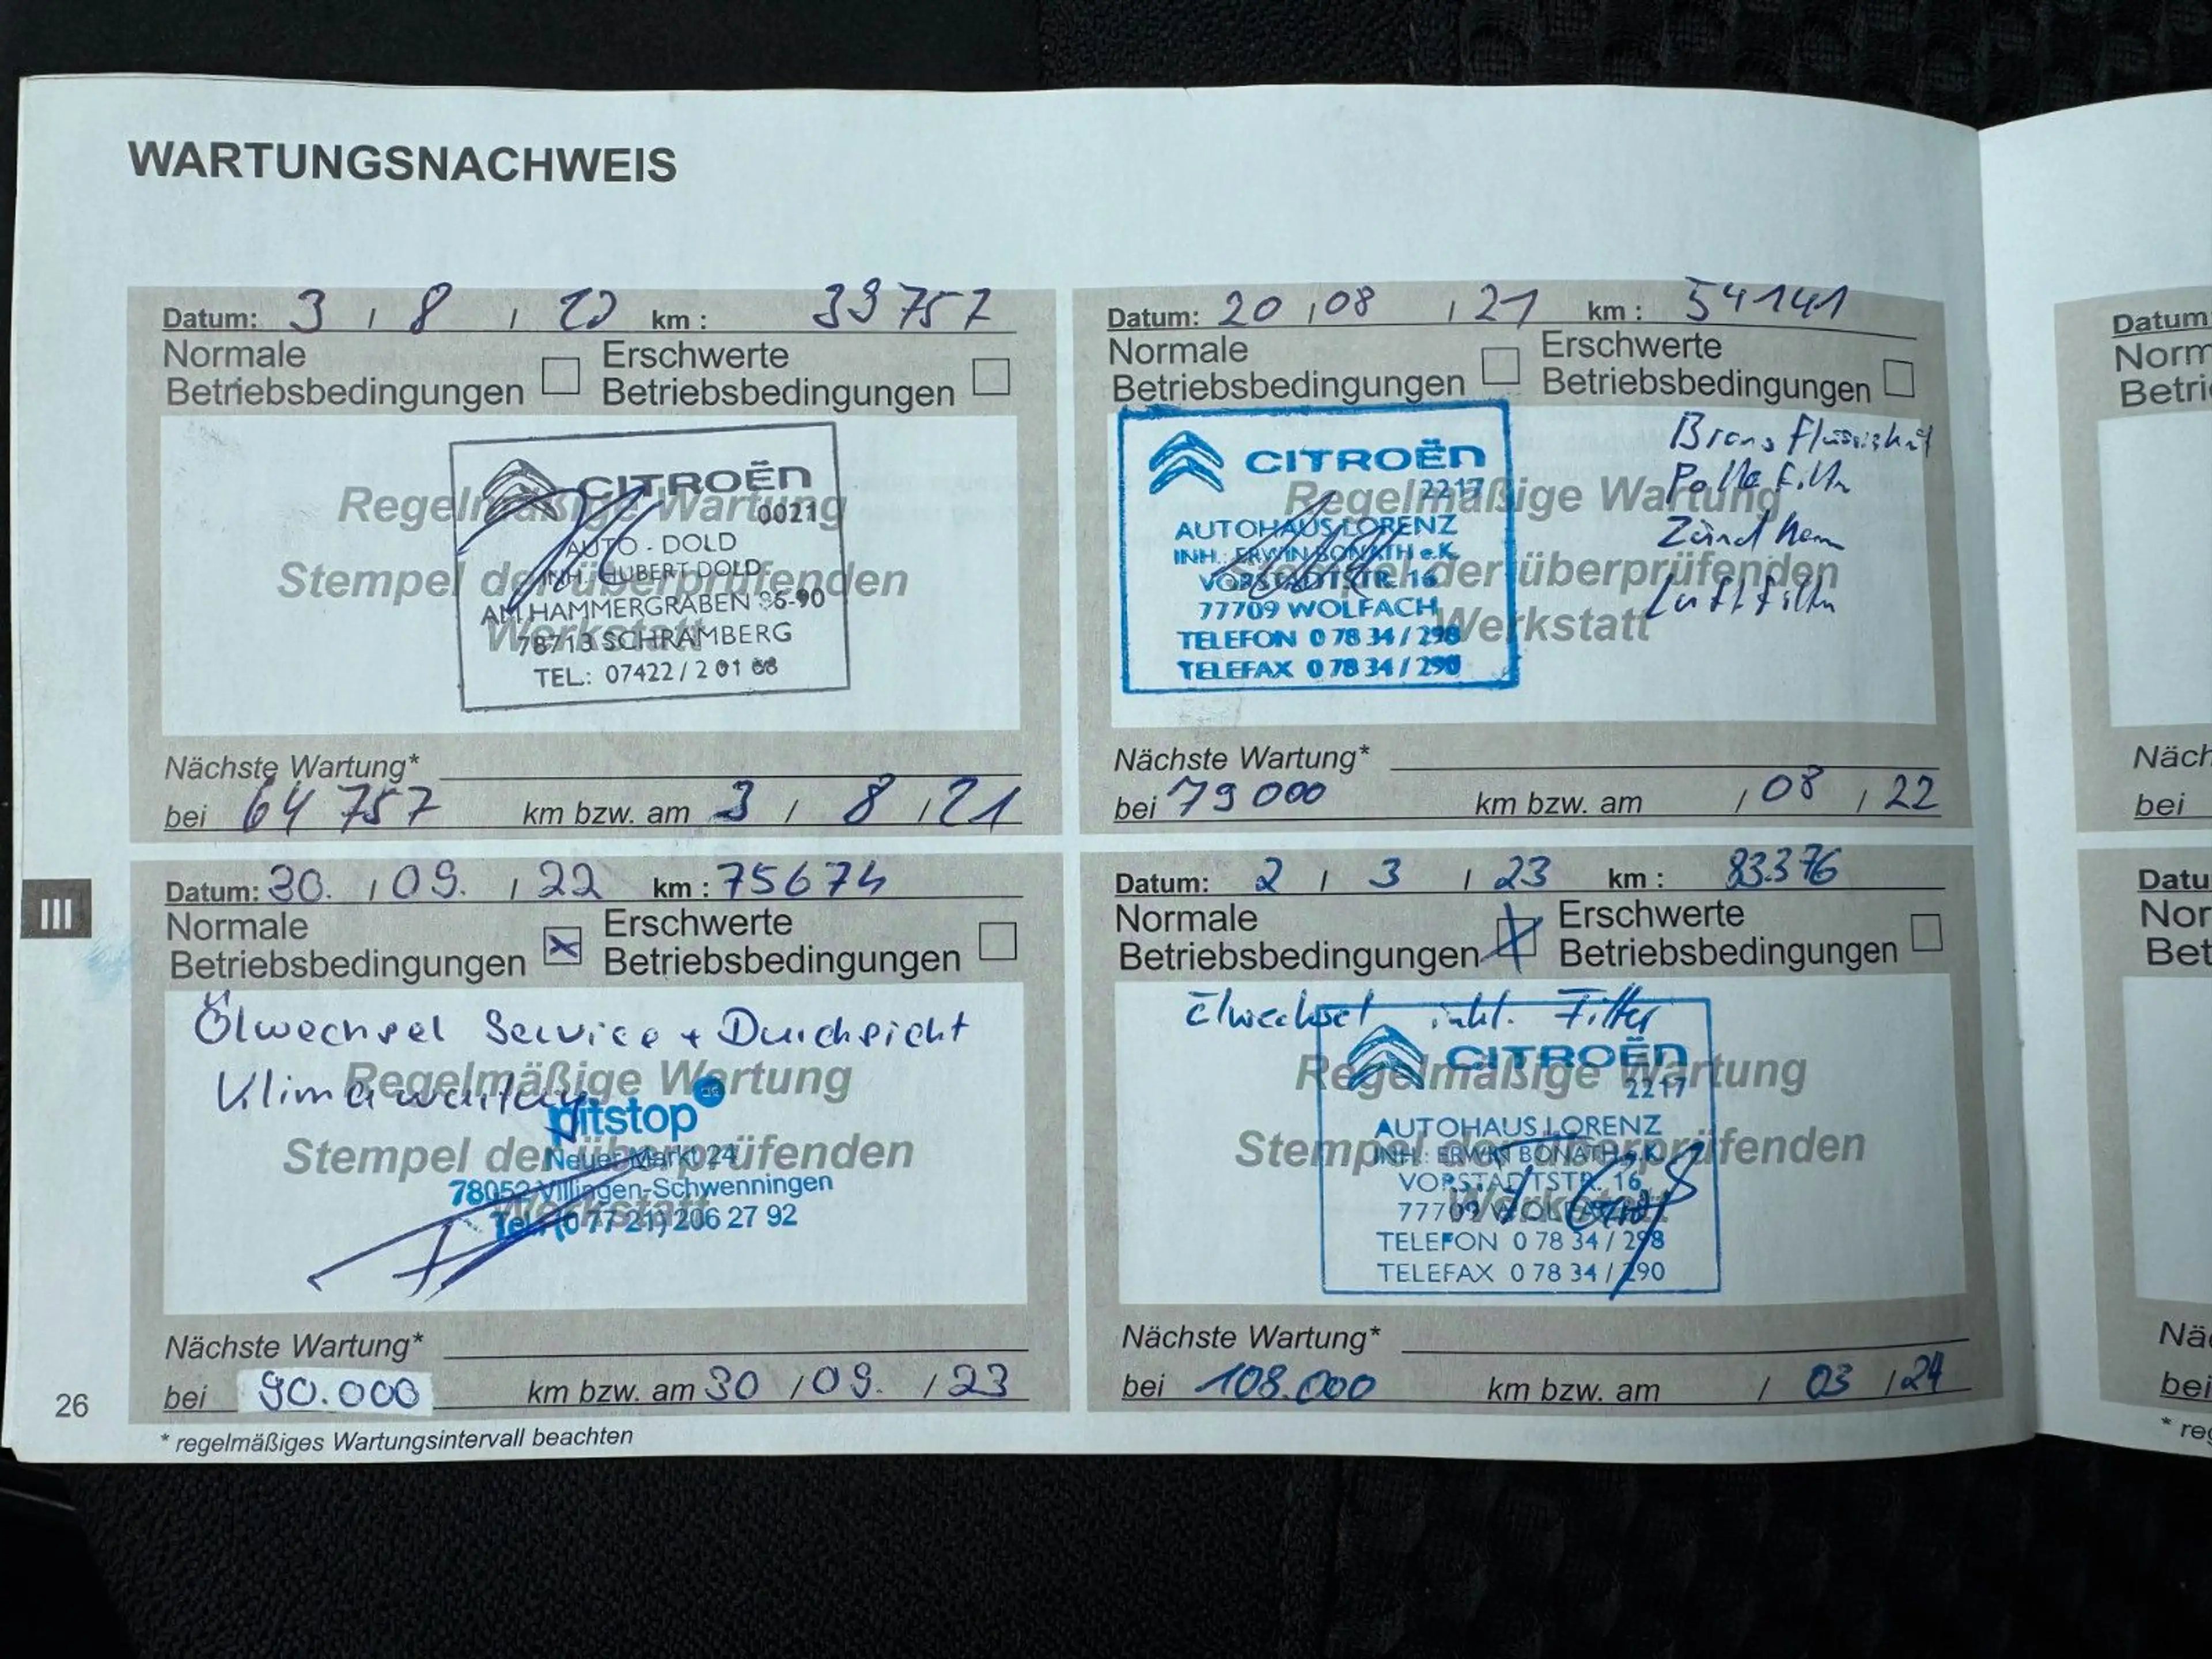 WARTUNGSNACHWEIS
Datum: 3 / 8 / 20 km: 39757
Normale Betriebsbedingungen
Erschwerte Betriebsbedingungen
Regelmäßige Wartung
Stempel der überprüfenden
Werkstatt
CITROËN
0021
AUTO - DOLD
INH. HUBERT DOLD
AM HAMMERGRABEN 86-90
78713 SCHRAMBERG
TEL.: 07422 / 2 01 68
Nächste Wartung*
bei 64757 km bzw. am 3 / 8 / 21
Datum: 20 / 08 / 21 km: 54141
Normale Betriebsbedingungen
Erschwerte Betriebsbedingungen
Regelmäßige Wartung
Stempel der überprüfenden
Werkstatt
CITROËN
2217
AUTOHAUS LORENZ
INH.: ERWIN BONATH e.K.
VORSTADTSTR. 16
77709 WOLFACH
TELEFON 0 78 34 / 298
TELEFAX 0 78 34 / 290
Luftfilter
Nächste Wartung*
bei 79000 km bzw. am / 08 / 22
Datum: 30. / 09. / 22 km: 75674
Normale Betriebsbedingungen
Erschwerte Betriebsbedingungen
Ölwechsel Service + Durchsicht
Klimawartung
Regelmäßige Wartung
Stempel der überprüfenden
Werkstatt
pitstop
Neuer Markt 24
78052 Villingen-Schwenningen
Tel. (0 77 21) 206 27 92
Nächste Wartung*
bei 90.000 km bzw. am 30 / 09. / 23
Datum: 2 / 3 / 23 km: 83.376
Normale Betriebsbedingungen
Erschwerte Betriebsbedingungen
inkl. Filter
Regelmäßige Wartung
Stempel der überprüfenden
Werkstatt
CITROËN
2217
AUTOHAUS LORENZ
INH.: ERWIN BONATH e.K.
VORSTADTSTR. 16
77709 WOLFACH
TELEFON 0 78 34 / 298
TELEFAX 0 78 34 / 290
Nächste Wartung*
bei 108.000 km bzw. am / 03 / 24
* regelmäßiges Wartungsintervall beachten
III
26
Datum
Norm
Betri
Näch
bei
Datu
Nor
Bet
Nä
bei
* re